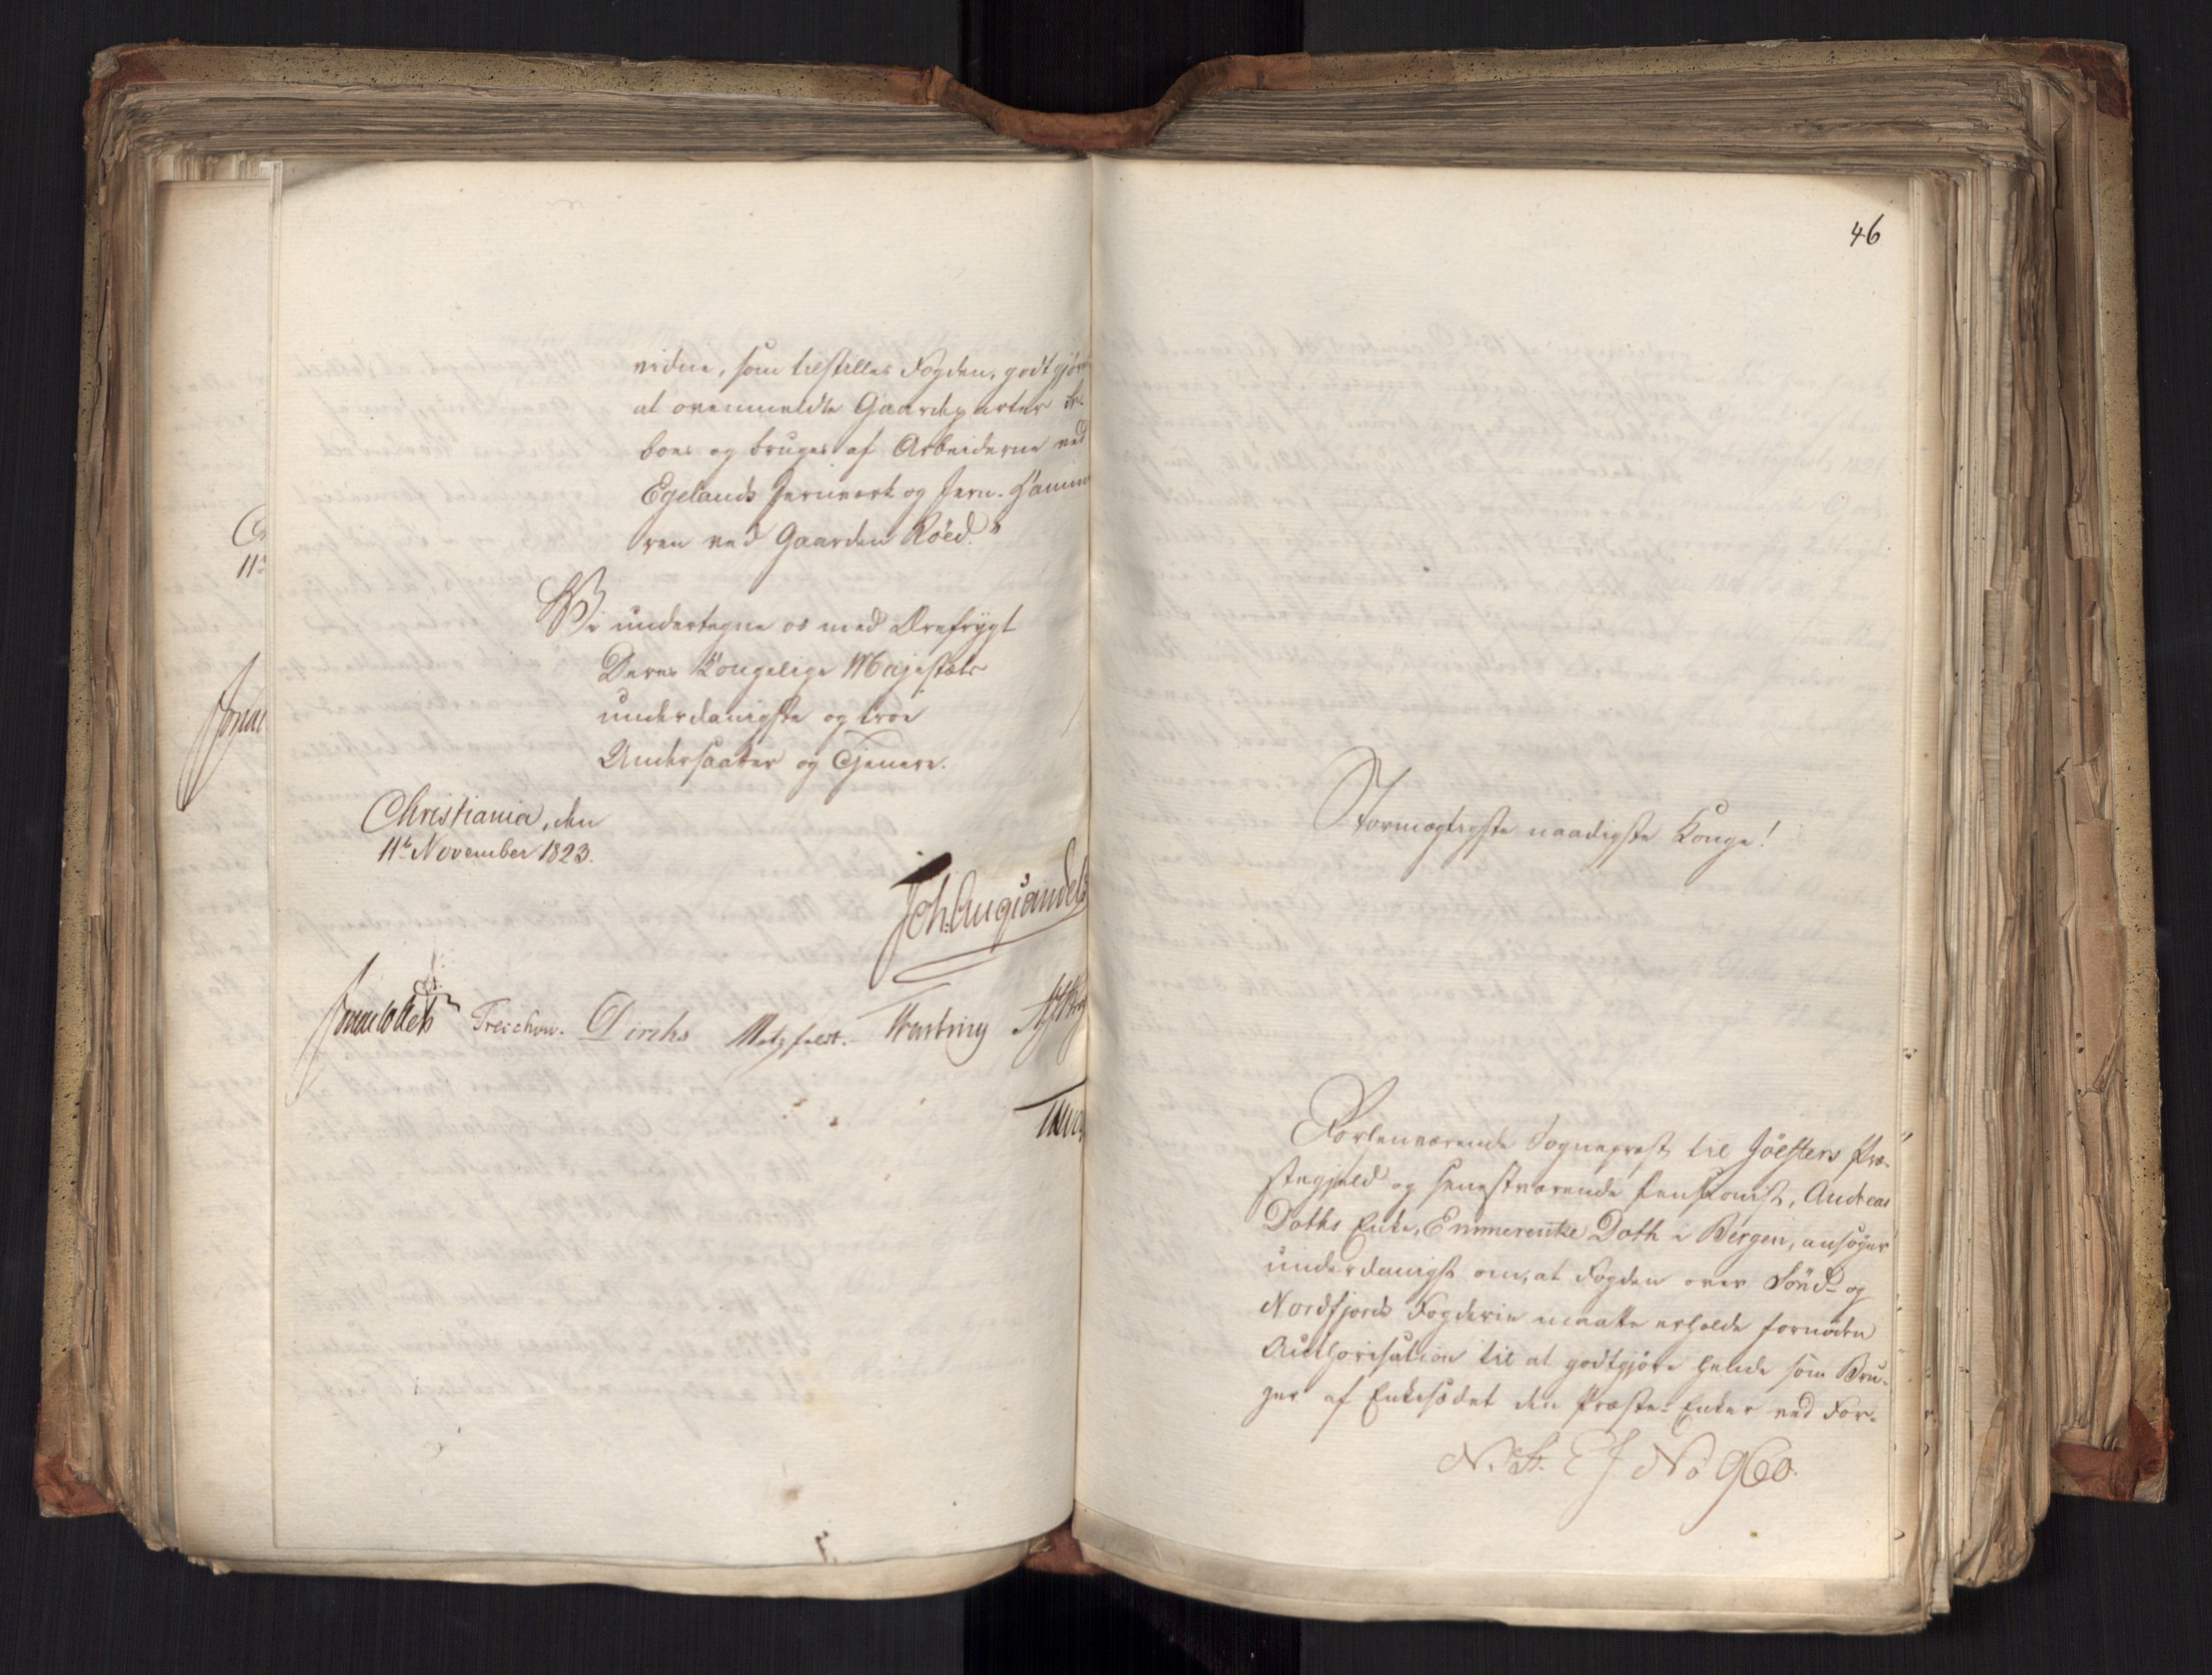 vidne, som tilstilles Fogden, godtgjøre
at ovenmeldte Gaardeparter be-
boes og bruges af Arbeiderne ved
Egelands Jernværk og Jern-Hamme
ren ved Gaarden Röed."
Vi undertegne os med Ærefrygt
Deres Kongelige Majestæts
underdanigste og troe
Undersaatter og Tjenere.
Christiania, den
11te November 1823.
Joh. Aug Sandels
Sommerfeldt Treschow. Diriks Motzfeldt.
46
Stormægtigste naadigste Konge!
Forhenværende Sogneprest til Jölsters Præ-
stegjeld og senestværende Pensionist, Andreas
Doths Enke, Emmerentze Doth i Bergen, ansøger
underdanigst om, at Fogden over Sönd- og
Nordfjords Fogderie maatte erholde fornøden
Authorisation til at godtgjøre hende som Bru-
ger af Enkesædet den Præste-Enker ved For-
N. St. E J. No 960.